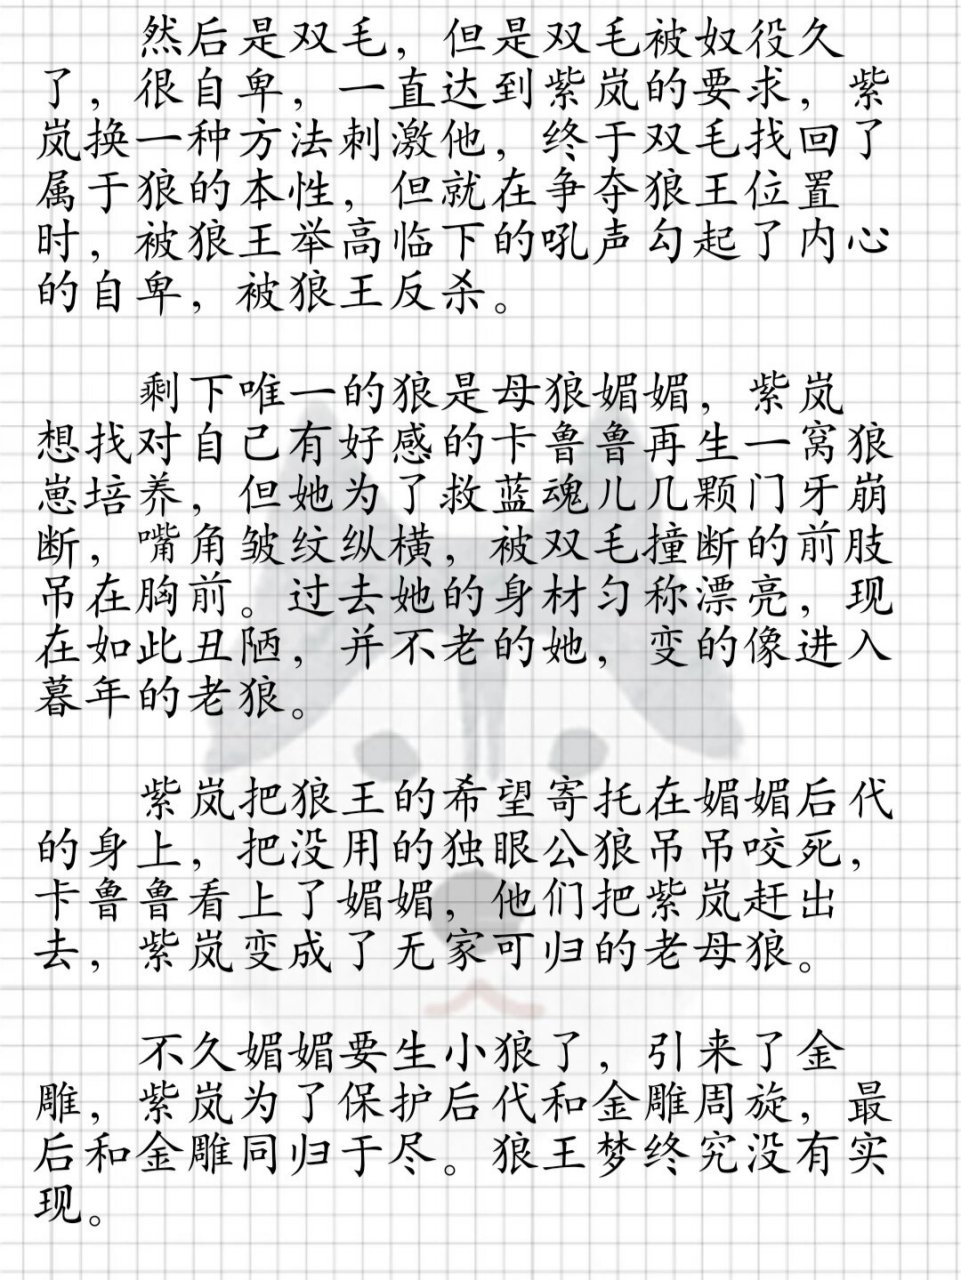 然后是双毛，但是双毛被奴役久
了，很自卑，一直达到紫岚的要求，紫
岚换一种方法刺激他，终于双毛找回了
属于狼的本性，但就在争夺狼王位置
时，被狼王举高临下的吼声勾起了内心
的自卑，被狼王反杀。
剩下唯一的狼是母狼媚媚，紫岚
想找对自己有好感的卡鲁鲁再生一窝狼
崽培养，但她为了救蓝魂儿几颗门牙崩
断，嘴角皱纹纵横，被双毛撞断的前肢
吊在胸前。过去她的身材匀称漂亮，现
在如此丑陋，并不老的她，变的像进入
暮年的老狼。
紫岚把狼王的希望寄托在媚媚后代
的身上，把没用的独眼公狼吊吊咬死，
卡鲁鲁看上了媚媚，他们把紫岚赶出
去，紫岚变成了无家可归的老母狼。
不久媚媚要生小狼了，引来了金
雕，紫岚为了保护后代和金雕周旋，最
后和金雕同归于尽。狼王梦终究没有实
现。